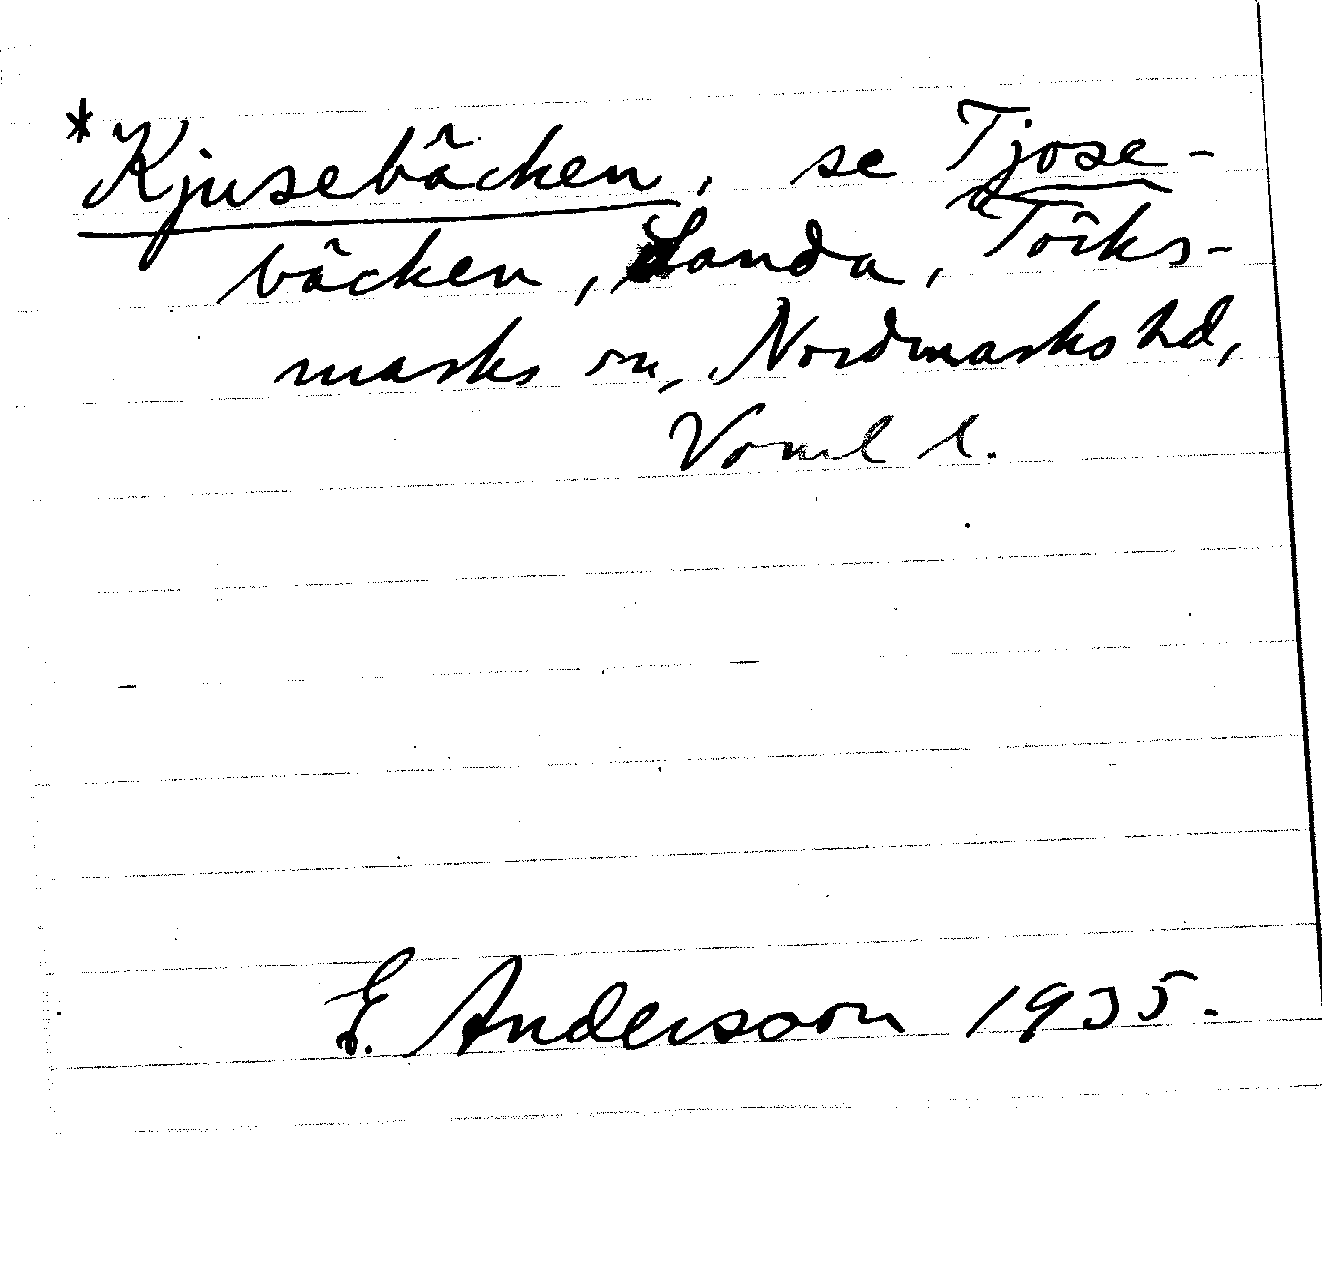 *Kjusebäcken, se Tjose-
bäcken, Landa, Töcks-
marks sn, Nordmarks hd,
Vrml l.
E. Andersson 1935.